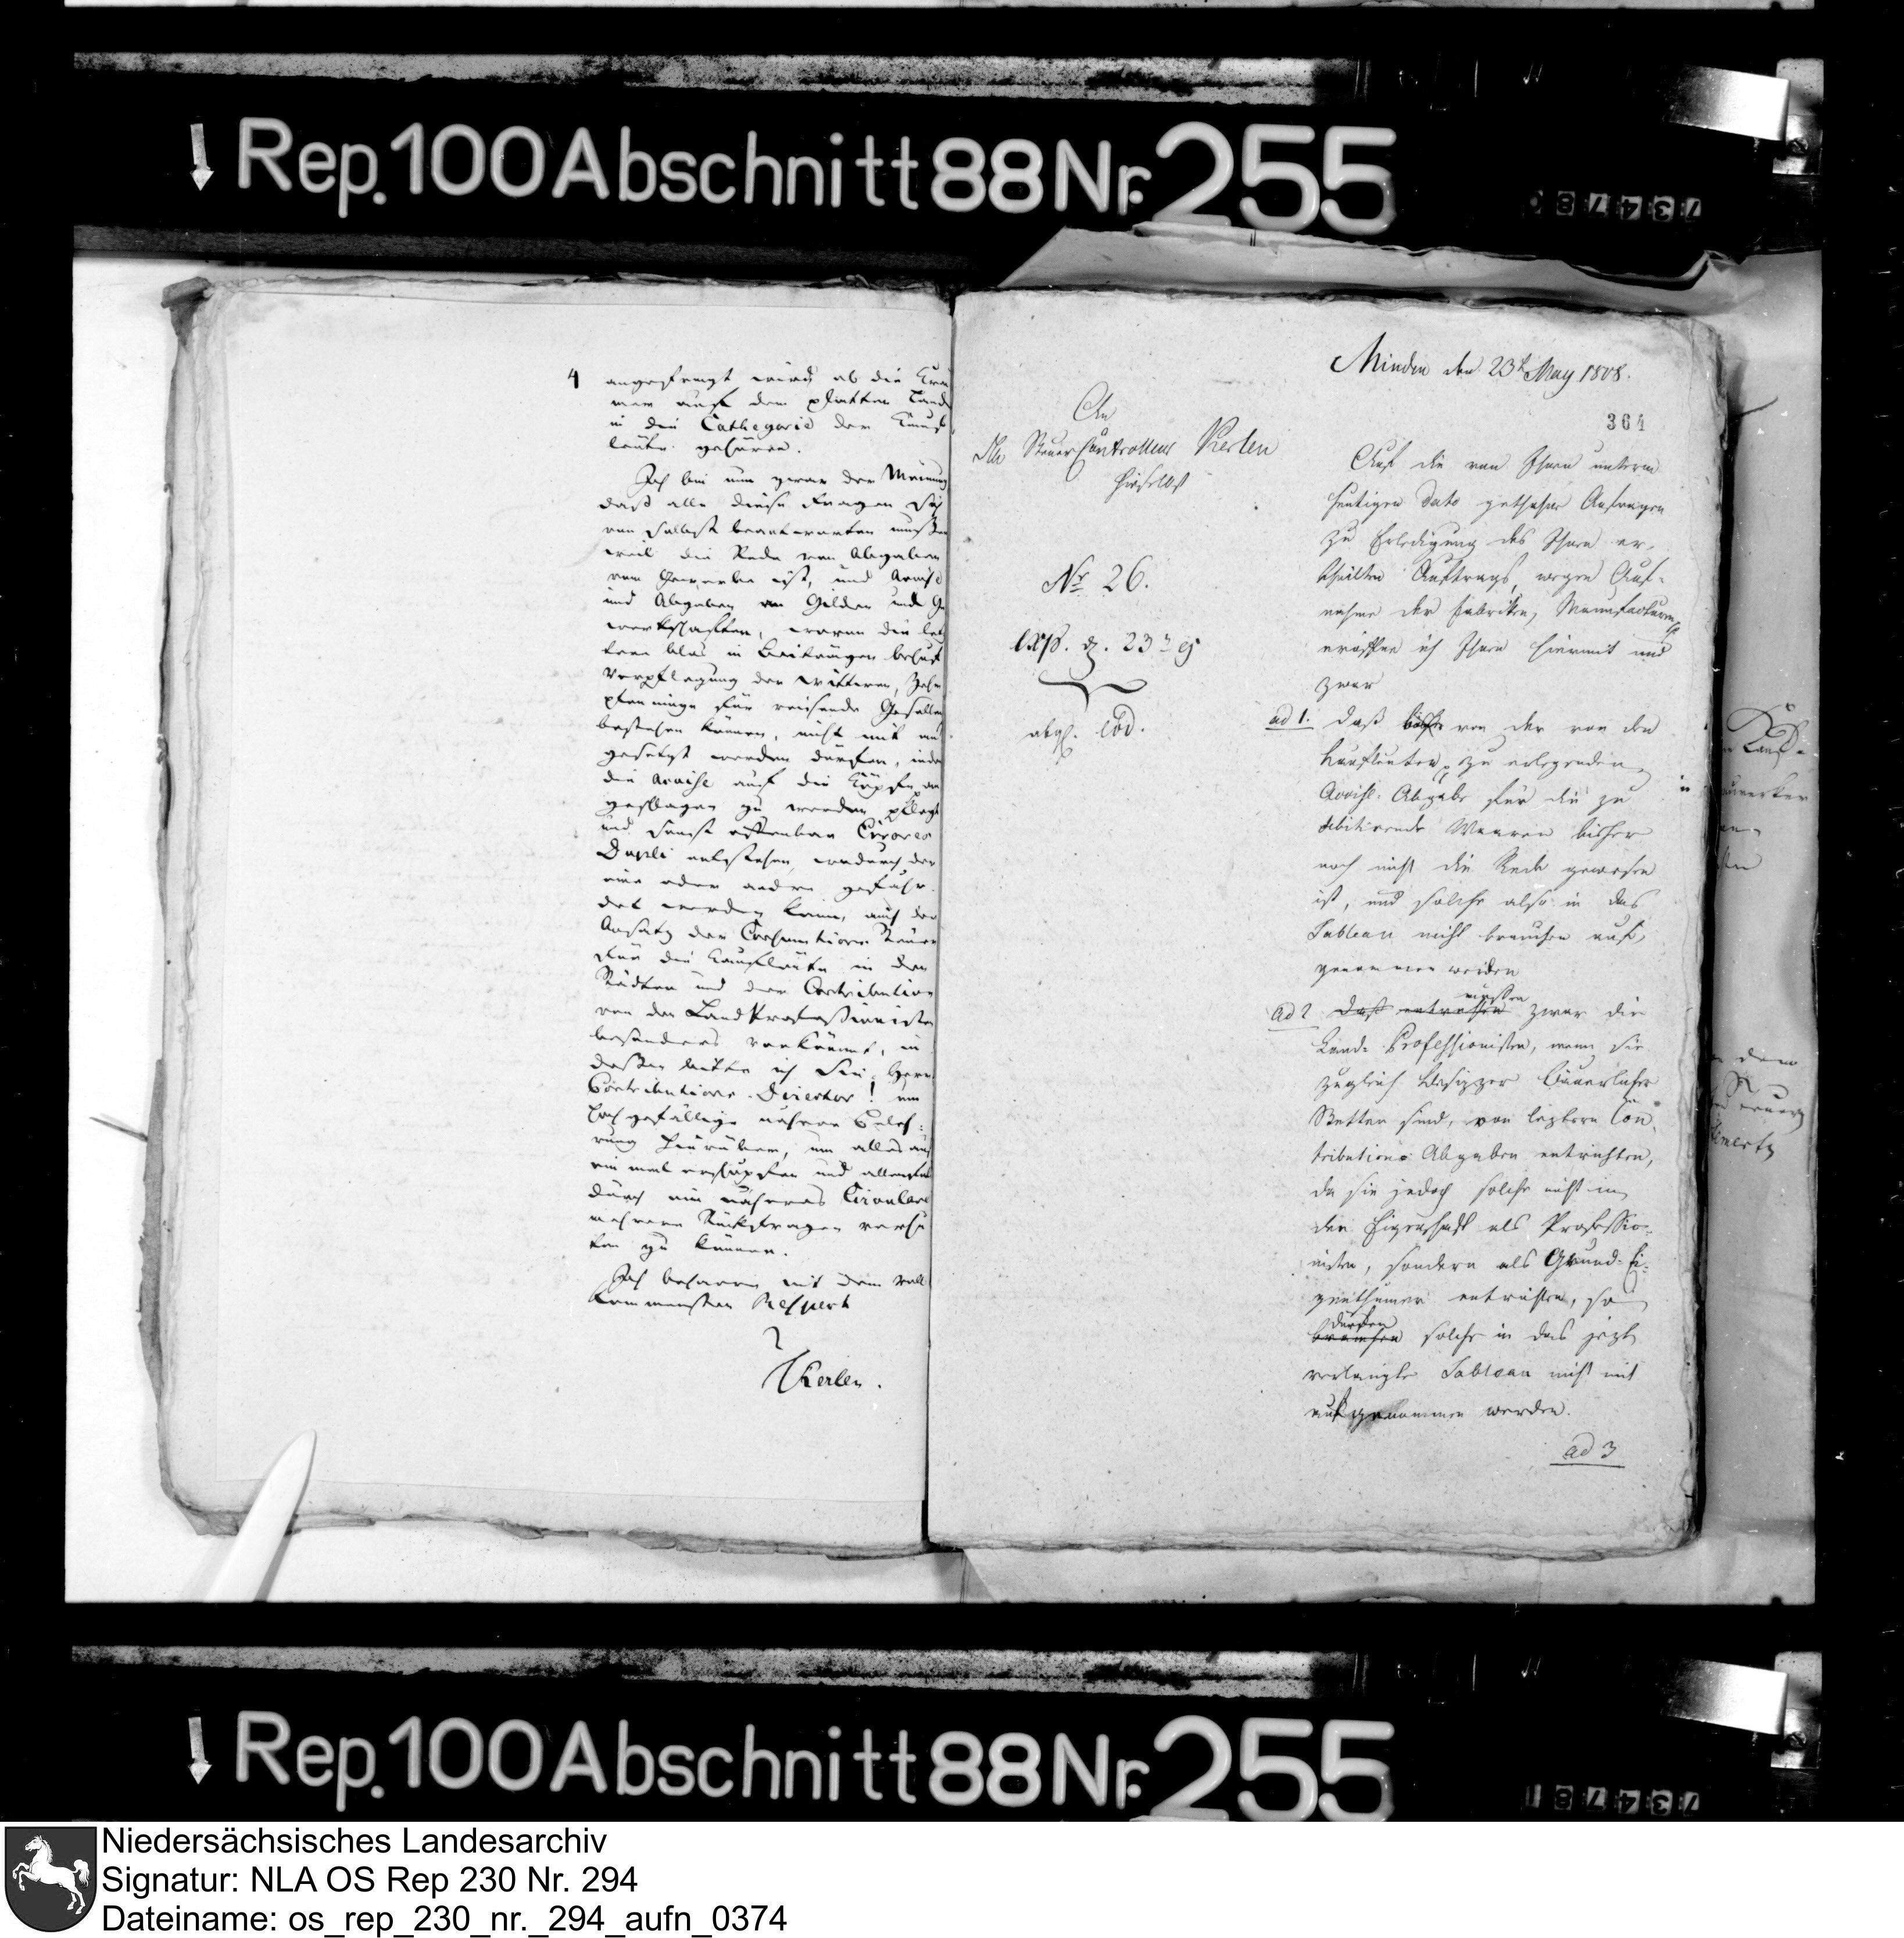 Rep. 100 Abschnitt 88 Nr. 255
73478
4 angefragt wird ob die Krä
mer auf dem platten Lande
in die Cathegorie der Kauf
leute gehören.
Ich bin nun zwar der Meinung
daß alle diese Fragen sich
von selbst beantworten müßen
weil die Rede von Abgaben
vom Gewerbe ist, und Accise
und Abgaben an Gilden und Ge
werkschaften, wovon die letz
tern blos in Beiträgen behuf
Verpflegung der Wittwen, Zehr
pfennige für reisende Gesellen
bestehen können, nicht mit an
gesetzt werden dürfen, indem
die Accise auf die Käufer
geschlagen zu werden pflegt
und sonst offenbar Errores
Dupli entstehen, wodurch der
eine oder andre gefähr
det werden kann, auch der
Ansatz der Consumtions Steuer
für die Kaufleute in den
Städten und der Contribution
von den Land Professionisten
besonders vorkömmt, in
deßen bitte ich Sie, Herr
Contributions-Director! um
hochgefällige nähere Beleh-
rung hierüber, um alles auf
ein mal
durch ein näheres Circulare
mehrern Rückfragen
zu können.
Ich beharre mit dem voll
kommensten Respect
Kerlen.
Minden den 23t May 1808.
364
An
Steuer Controlleur Kerlen
hieselbst
No 26.
exp. d. 23
abg. eod.
Auf die von Ihnen unterm
heutigen dato gethane Anfragen
zu Erledigung des Ihnen er-
theilten Auftrags, wegen Auf-
nahme der Fabriken, Manufacturen
eröffne ich Ihnen hiermit und
zwar
ad 1. daß von der von den
Kaufleuten zu erlegenden
Accise-Abgabe für die zu
debitirende Waaren bisher
noch nicht die Rede gewesen
ist, und solche also in das
Tableau nicht brauchen auf-
genommen werden
müssen
ad 2 daß entrichten zwar die
Lands Professionisten, wenn sie
zugleich Besitzer bäuerlicher
Stetten sind, von leztern Con-
tributions Abgaben entrichten,
da sie jedoch solche nicht in
der Eigenschaft als Professio-
nisten, sondern als Grund-Ei-
genthümer entrichten, so
dürfen
brauchen solche in das jezt
verlangte Tableau nicht mit
aufgenommen werden.
ad 3
Rep. 100 Abschnitt 88 Nr. 255
73478
Niedersächsisches Landesarchiv
Signatur: NLA OS Rep 230 Nr. 294
Dateiname: os_rep_230_nr._294_aufn_0374